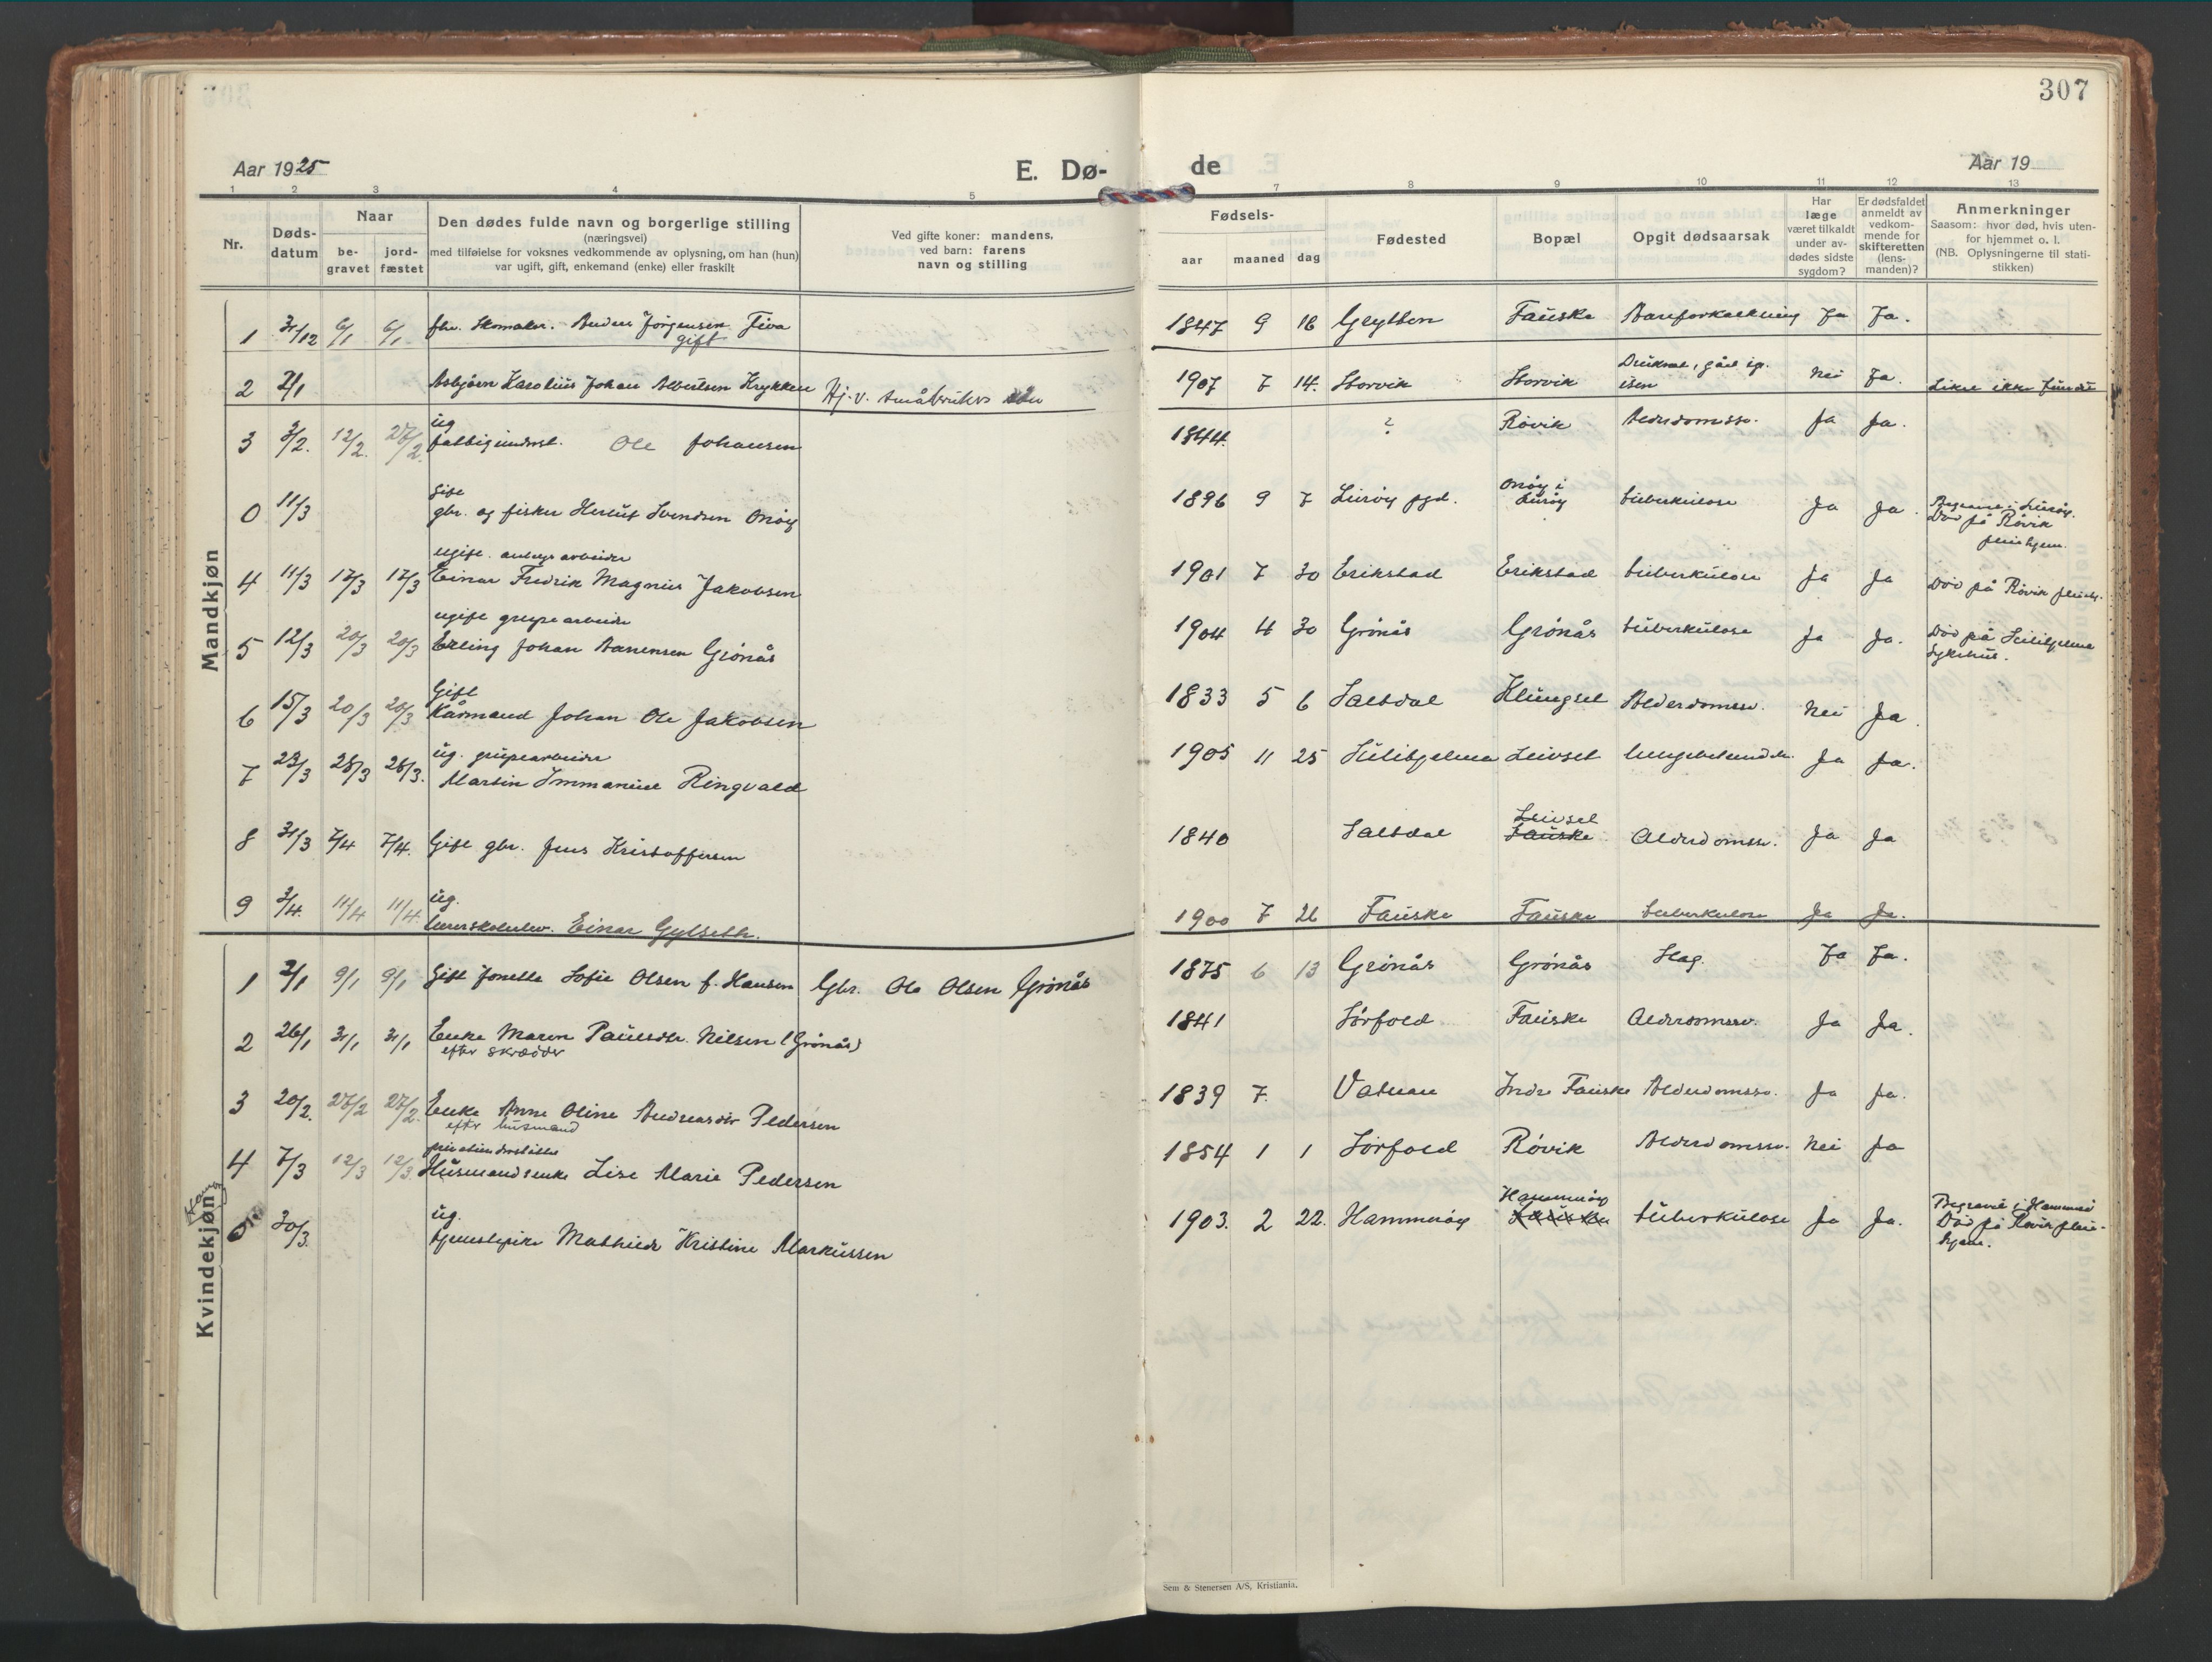 307
Aar 1925
E. Dø-
de
Aar 19
1 2 3 4 5 7 8 9 10 11 12 13
Nr.
Døds-
datum
Naar
be-
gravet
jord-
fæstet
Den dødes fulde navn og borgerlige stilling
(næringsvei)
med tilføielse for voksnes vedkommende av oplysning, om han (hun)
var ugift, gift, enkemand (enke) eller fraskilt
Ved gifte koner: mandens,
ved barn: farens
navn og stilling
Fødsels-
aar maaned dag
Fødested
Bopæl
Opgit dødsaarsak
Har
læge
været tilkaldt
under av-
dødes sidste
sygdom?
Er dødsfaldet
anmeldt av
vedkom-
mende for
skifteretten
(lens-
manden)?
Anmerkninger
Saasom: hvor død, hvis uten-
for hjemmet o. l.
(NB. Oplysningerne til stati-
stikken)
Mandkjøn
1 31/12 6/1 6/1 fhv. Skomaker. Anders Jørgensen Fiva
gift
1847 9 16 Grytten Fauske Aareforkalkning Ja Ja.
2 2/1 Asbjørn Karolius Johan Albertsen Krykken
1907 7 14. Storvik Storvik Druknet, gåel ig.
isen
Nei Ja. Liket ikke fundet
ug
3 3/2. 12/2. 27/2. fattigunderst. Ole Johansen
1844. ? Røvik Alderdomssv. Ja Ja.
gift
0 11/3 gbr. og fisker Herlut Svendsen Onøy
1896 9 7 Lurøy pgd. Onøy i
Lurøy
tuberkulose Ja Ja. Begravet i Lurøy.
Død på Røvik
pleiehjem.
ugift. anlegsarbeider
4 11/3 17/3 17/3 Einar Fredrik Magnus Jakobsen
1901 7 30 Erikstad Erikstad tuberkulose Ja Ja Død på Røvik pleieh.
ugift grubearbeider
5 12/3 20/3 20/3 Erling Johan Aanensen Grønås
1904 4 30 Grønås Grønås tuberkulose Ja Ja. Død på Sulitjelma
Sykehus.
Gift
6 15/3 20/3 20/3 Kårmand Johan Ole Jakobsen
1833 5 6 Saltdal Klungset Alderdomssv. Nei Ja.
ug. grubearbeider
7 23/3 28/3 28/3. Martin Immanuel Ringvald
1905 11 25 Sulitjelma Leivset lungebetendelse Ja Ja.
8 31/3 7/4 7/4. Gift gbr. Jens Kristoffersen
1840 Saltdal Leivset
Fauske
Alderdomssv. Ja Ja
ug.
9 3/4. 11/4 11/4. lærerskoleelev. Einar Gylseth.
1900 7 26 Fauske Fauske tuberkulose Ja Ja.
Kvindekjøn
1 2/1 9/1 9/1 Gift Jonette Sofie Olsen f. Hansen Gbr. Ole Olsen Grønås
1875 6 13 Grønås Grønås Slag. Ja Ja.
2 26/1 31/1 31/1 Enke Maren Paulsdtr. Nilsen (Grønås)
efter skrædder
1841 Sørfold Fauske Alderdomssv. Ja Ja.
3 20/2. 27/2 27/2. Enke Anne Oline Andreasdtr Pedersen
efter husmand
1839 7. Vatnan Indre Fauske Alderdomssv. Ja Ja.
4 7/3 12/3 12/3. Husmandsenke Lise Marie Pedersen
1854 1 1 Sørfold Røvik Alderdomssv. Nei Ja
ug.
0 30/3. tjenestepike Mathilde Kristine Markussen
1903. 2 22. Hammerøy Hammerøy
Fauske
tuberkulose Ja Ja. Begravet i Hammerø
Død på Røvik pleie-
hjem.
Sem & Stenersen A/S, Kristiania.